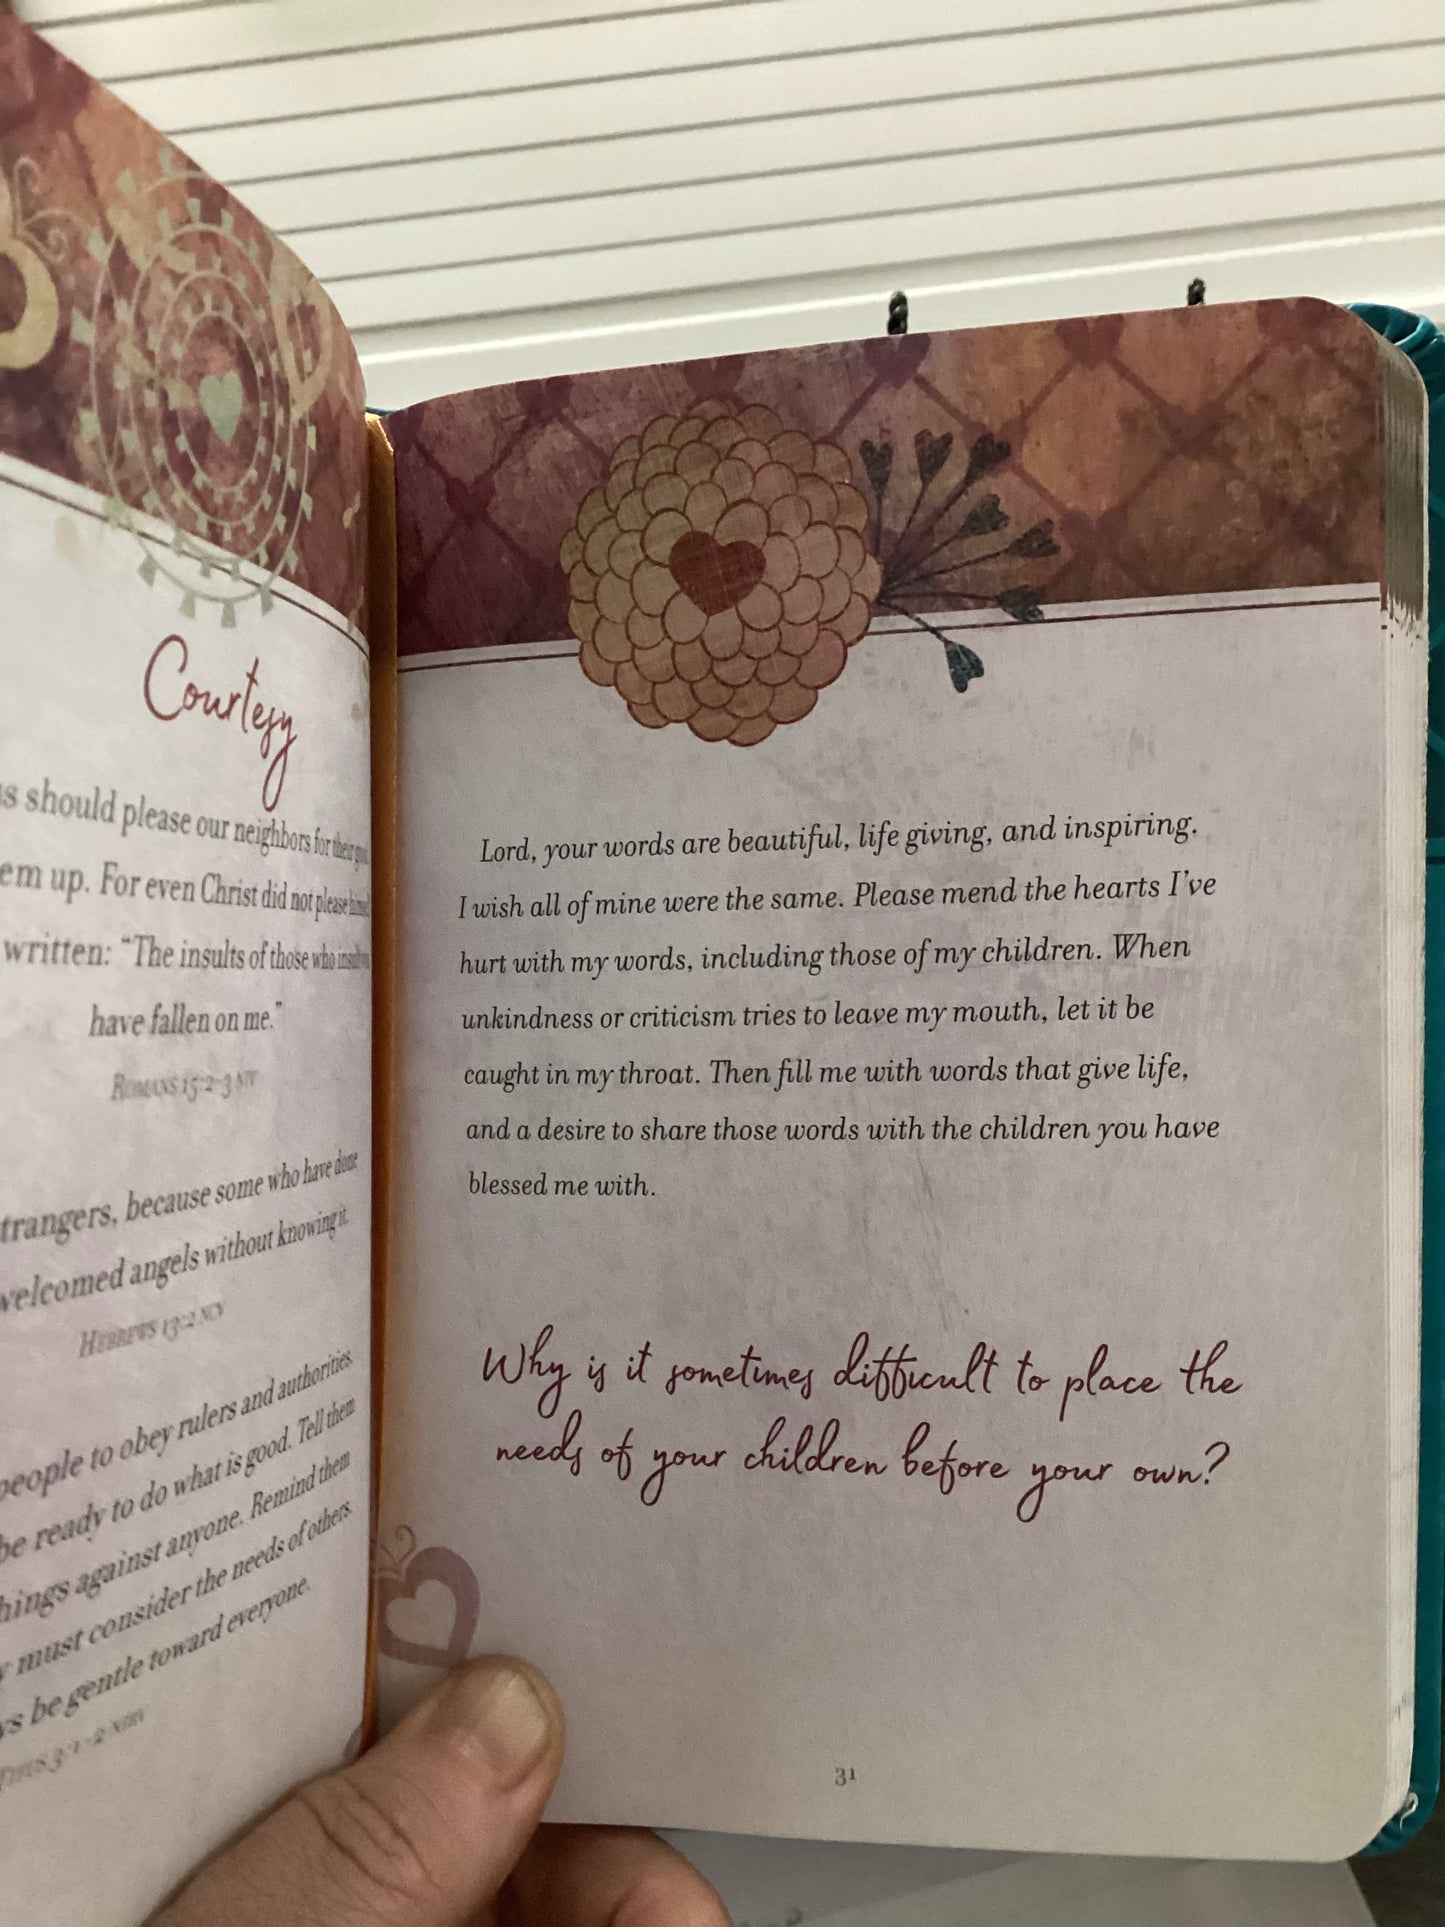 Courtesy
should please our neighbors for their good,
em up. For even Christ did not please himself
written: “The insults of those who insult you
have fallen on me.”
Romans 15:2-3 NIV
trangers, because some who have done
welcomed angels without knowing it.
Hebrews 13:2 NCV
people to obey rulers and authorities.
be ready to do what is good. Tell them
hings against anyone. Remind them
must consider the needs of others.
ys be gentle toward everyone.
Titus 3:1-2 NIRV
Lord, your words are beautiful, life giving, and inspiring.
I wish all of mine were the same. Please mend the hearts I’ve
hurt with my words, including those of my children. When
unkindness or criticism tries to leave my mouth, let it be
caught in my throat. Then fill me with words that give life,
and a desire to share those words with the children you have
blessed me with.
Why is it sometimes difficult to place the
needs of your children before your own?
31